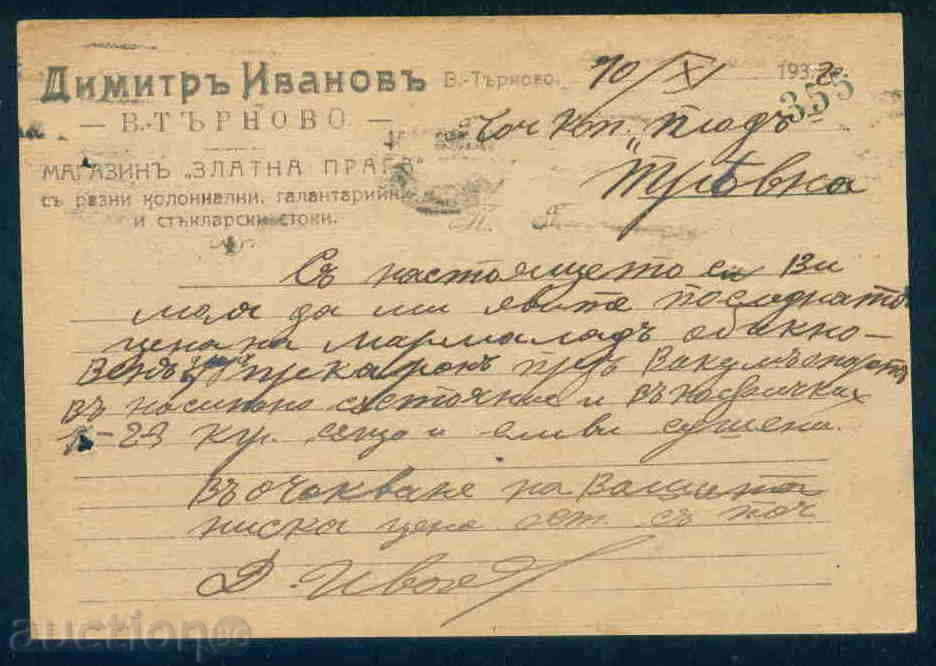 Димитръ Ивановъ
— В.-ТЪРНОВО —
МАГАЗИНЪ „ЗЛАТНА ПРАГА“
съ разни колониални, галантарийни
и стъкларски стоки.
В.-Търново. 10/XI 1932
355
„Плодъ“
Трѣвна
Съ настоящето си Ви
моля да ми явите последната
цена на мармаладъ обикно-
венъ прекаранъ презъ Вакумъ
въ насипно състояние и въ
23 кгр. също и сливи сушени.
Въ очакване на Вашата
ниска цена ост. съ поч.
Д. Ивановъ
auction.bg